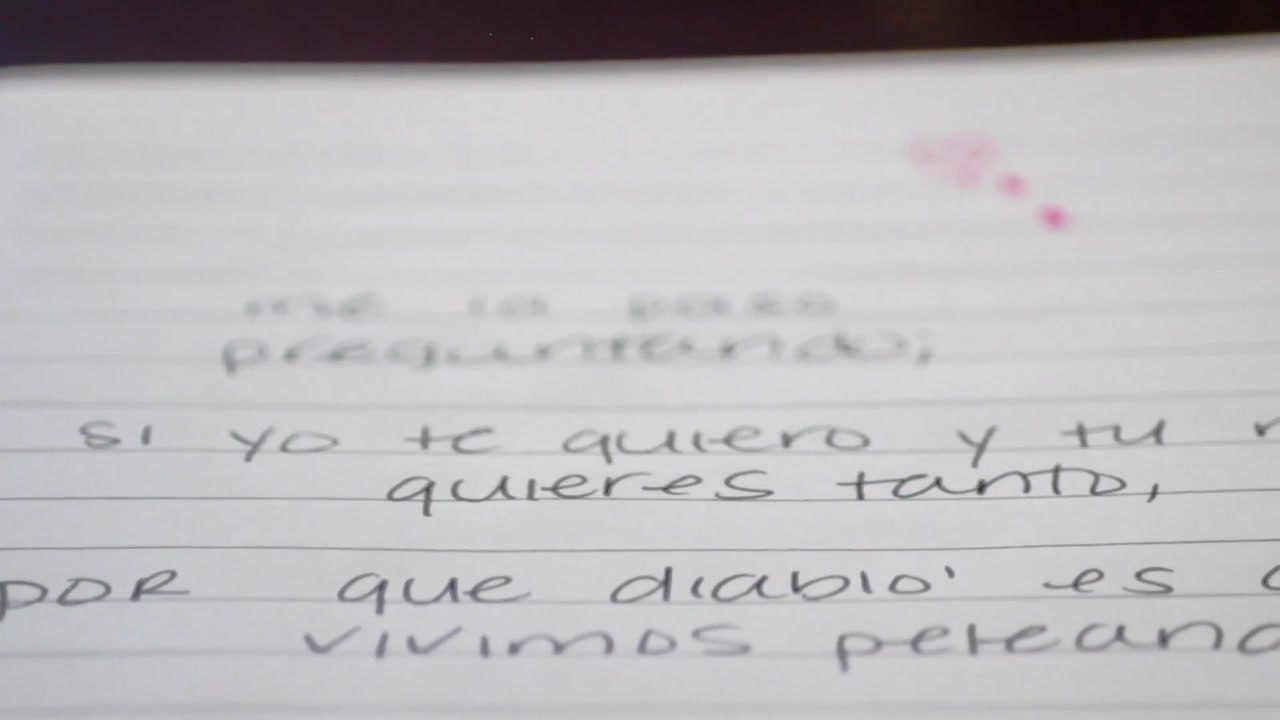 me lo paso
preguntando;
si yo te quiero y tu
quieres tanto,
por que diablo' es
vivimos peleand